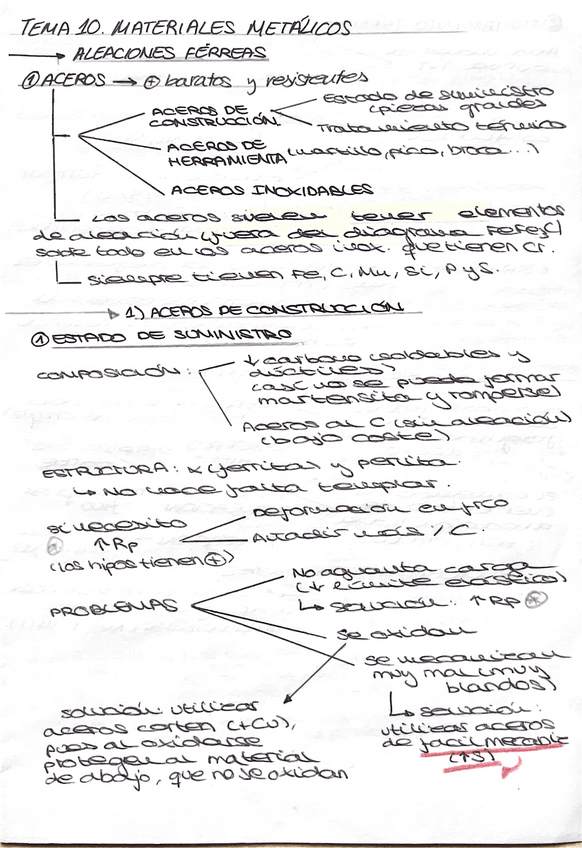 TEMA 10. MATERIALES METÁLICOS
→ ALEACIONES FÉRREAS
① ACEROS → ⊕ baratos y resistentes
ACEROS DE CONSTRUCCIÓN
Estado de suministro
(piezas grandes)
Tratamiento térmico
ACEROS DE
HERRAMIENTA (martillo, pico, broca...)
ACEROS INOXIDABLES
Los aceros suelen tener elementos
de aleación (fuera del diagrama Fe-Fe3C)
sobre todo en los aceros inox. que tienen Cr.
siempre tienen Fe, C, Mn, Si, P y S.
1) ACEROS DE CONSTRUCCIÓN
① ESTADO DE SUMINISTRO
COMPOSICIÓN:
↓ carbono (soldables y
dúctiles)
(así no se puede formar
martensita y romperse)
Aceros al C (sin aleación)
(bajo coste)
ESTRUCTURA: α (ferrita) y perlita.
↳ No hace falta templar.
si necesito
↑Rp
(los hipos tienen ⊕)
Deformación en frío
Añadir más % C.
PROBLEMAS
No aguanta carga
(↓ límite elástico)
↳ solución: ↑Rp
se oxidan
se mecanizan
muy mal (muy
blandos)
↳ solución:
utilizar aceros
de fácil mecaniz
(↑S)
solución: utilizar
aceros corten (+Cu),
pues al oxidarse
protegen al material
de abajo, que no se oxidan